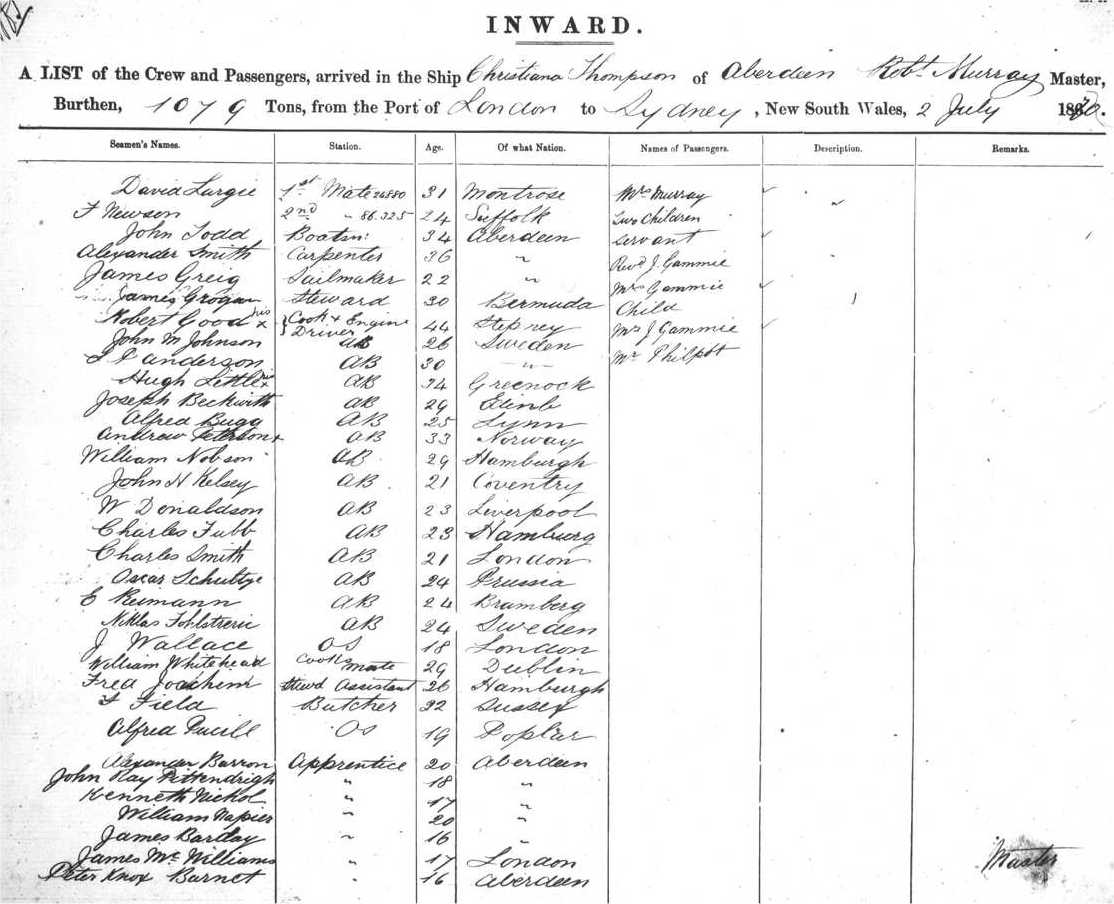 INWARD.
A LIST of the Crew and Passengers, arrived in the Ship Christiana Thompson of Aberdeen Robt. Murray Master,
Burthen, 1079 Tons, from the Port of London to Sydney, New South Wales, 2 July 187
Seamen's Names. Station. Age. Of what Nation. Names of Passengers. Description. Remarks.
David Largie 1st Mate 26880 31 Montrose Mrs Murray
F Newson 2nd " 86.325 24 Suffolk Two Children
John Todd Boatsn: 34 Aberdeen Servant
Alexander Smith Carpenter 36 " Revd J. Gammie
James Greig Sailmaker 22 " Mrs Gammie
James Grogan Steward 30 Bermuda Child
Robert Good his x Cook & Engine Driver 44 Stepney Mrs J Gammie
John M Johnson AB 26 Sweden Mr Philpot
anderson AB 30 "
Hugh Little AB 34 Greenock
Joseph Beckwith AB 29 Edinb
Alfred Bugg AB 25 Lynn
Andrew Peterson x AB 33 Norway
William Nobson AB 29 Hamburgh
John H Kelsey AB 21 Coventry
W Donaldson AB 23 Liverpool
Charles Tubb AB 23 Hamburg
Charles Smith AB 21 London
Oscar Schultze AB 24 Prussia
E Reimann AB 24 Bramberg
Niklas AB 24 Sweden
J Wallace OS 18 London
William Whitehead Cooks Mate 29 Dublin
Fred Joachim Stewd Assistant 26 Hamburgh
F Field Butcher 22 Sussex
Alfred OS 19 Poplar
Alexander Barron Apprentice 20 Aberdeen
John Ray Pittendrigh " 18 "
Kenneth Nichol " 17 "
William Napier " 20 "
James Barclay " 16 "
James McWilliams " 17 London Master
Peter Knox Barnet " 16 Aberdeen